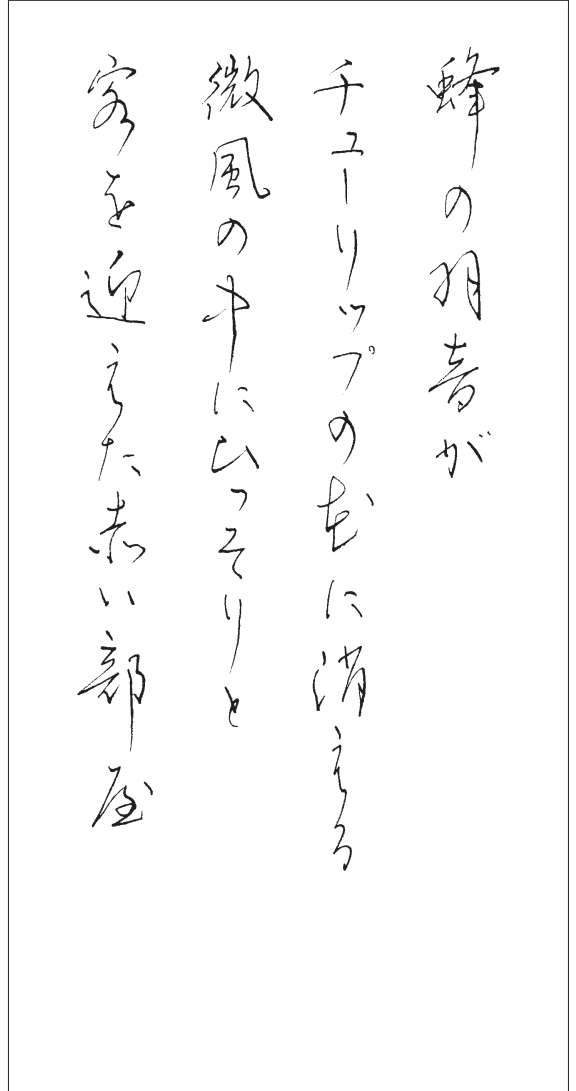 蜂の羽音が
チューリップの花に消える
微風の中にひっそりと
客を迎えた赤い部屋